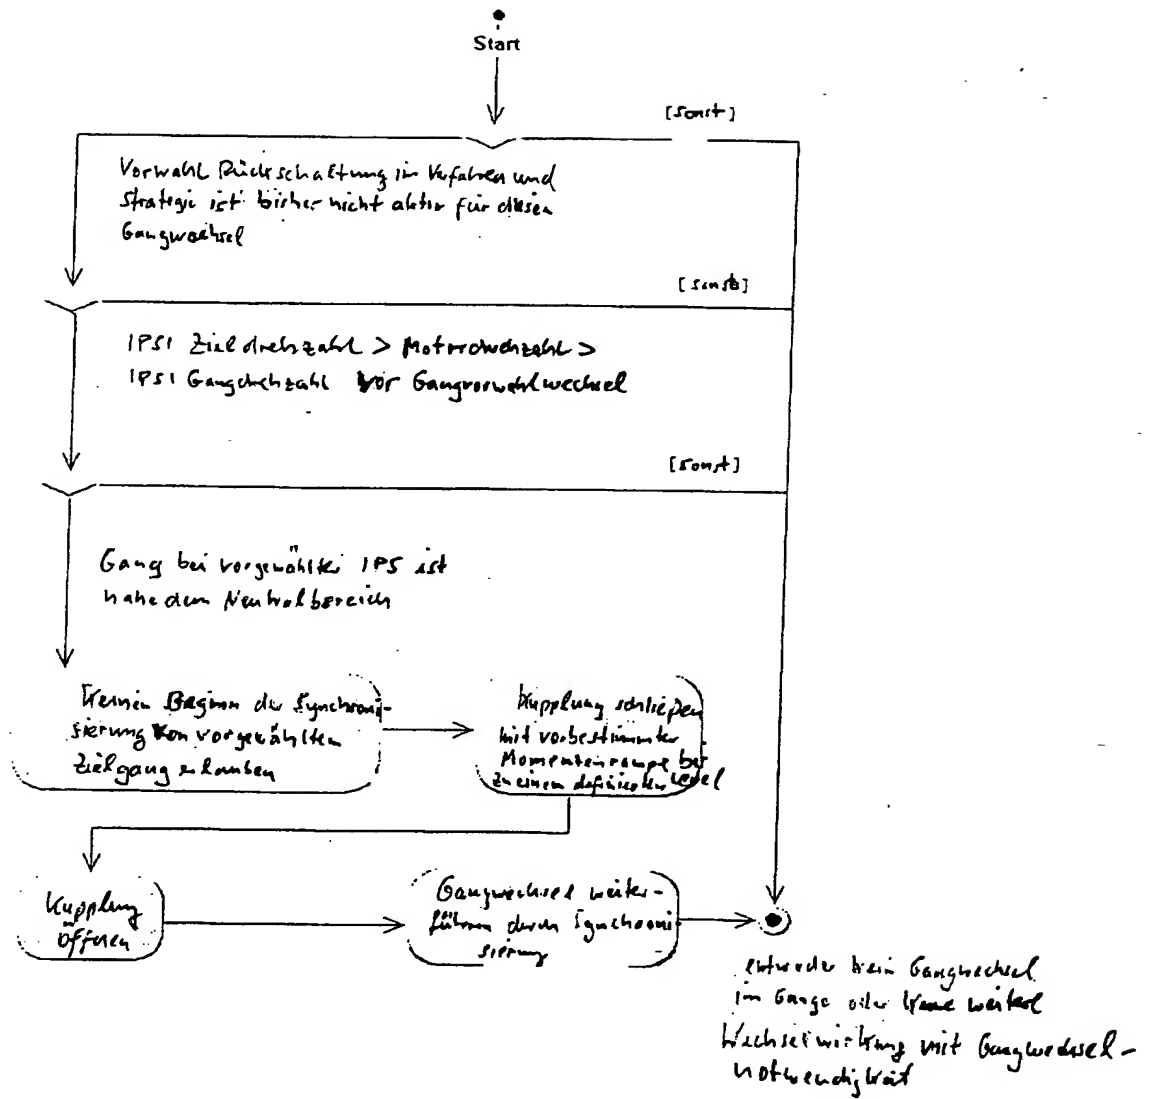 Start
[sonst]
Vorwahl Rückschaltung im Verfahren und
Strategie ist bisher nicht aktiv für diesen
Gangwechsel
[sonst]
IPS1 Zieldrehzahl > Motordrehzahl >
IPS1 Gangdrehzahl vor Gangvorwahlwechsel
[sonst]
Gang bei vorgewählter IPS ist
nahe dem Neutralbereich
Keinen Beginn der Synchroni-
sierung von vorgewählten
Zielgang erlauben
Kupplung schließen
mit vorbestimmter
Momentenrampe bis
zu einem definierten Level
Kupplung
öffnen
Gangwechsel weiter-
führen durch Synchroni-
sierung
entweder kein Gangwechsel
im Gange oder keine weitere
Wechselwirkung mit Gangwechsel-
notwendigkeit